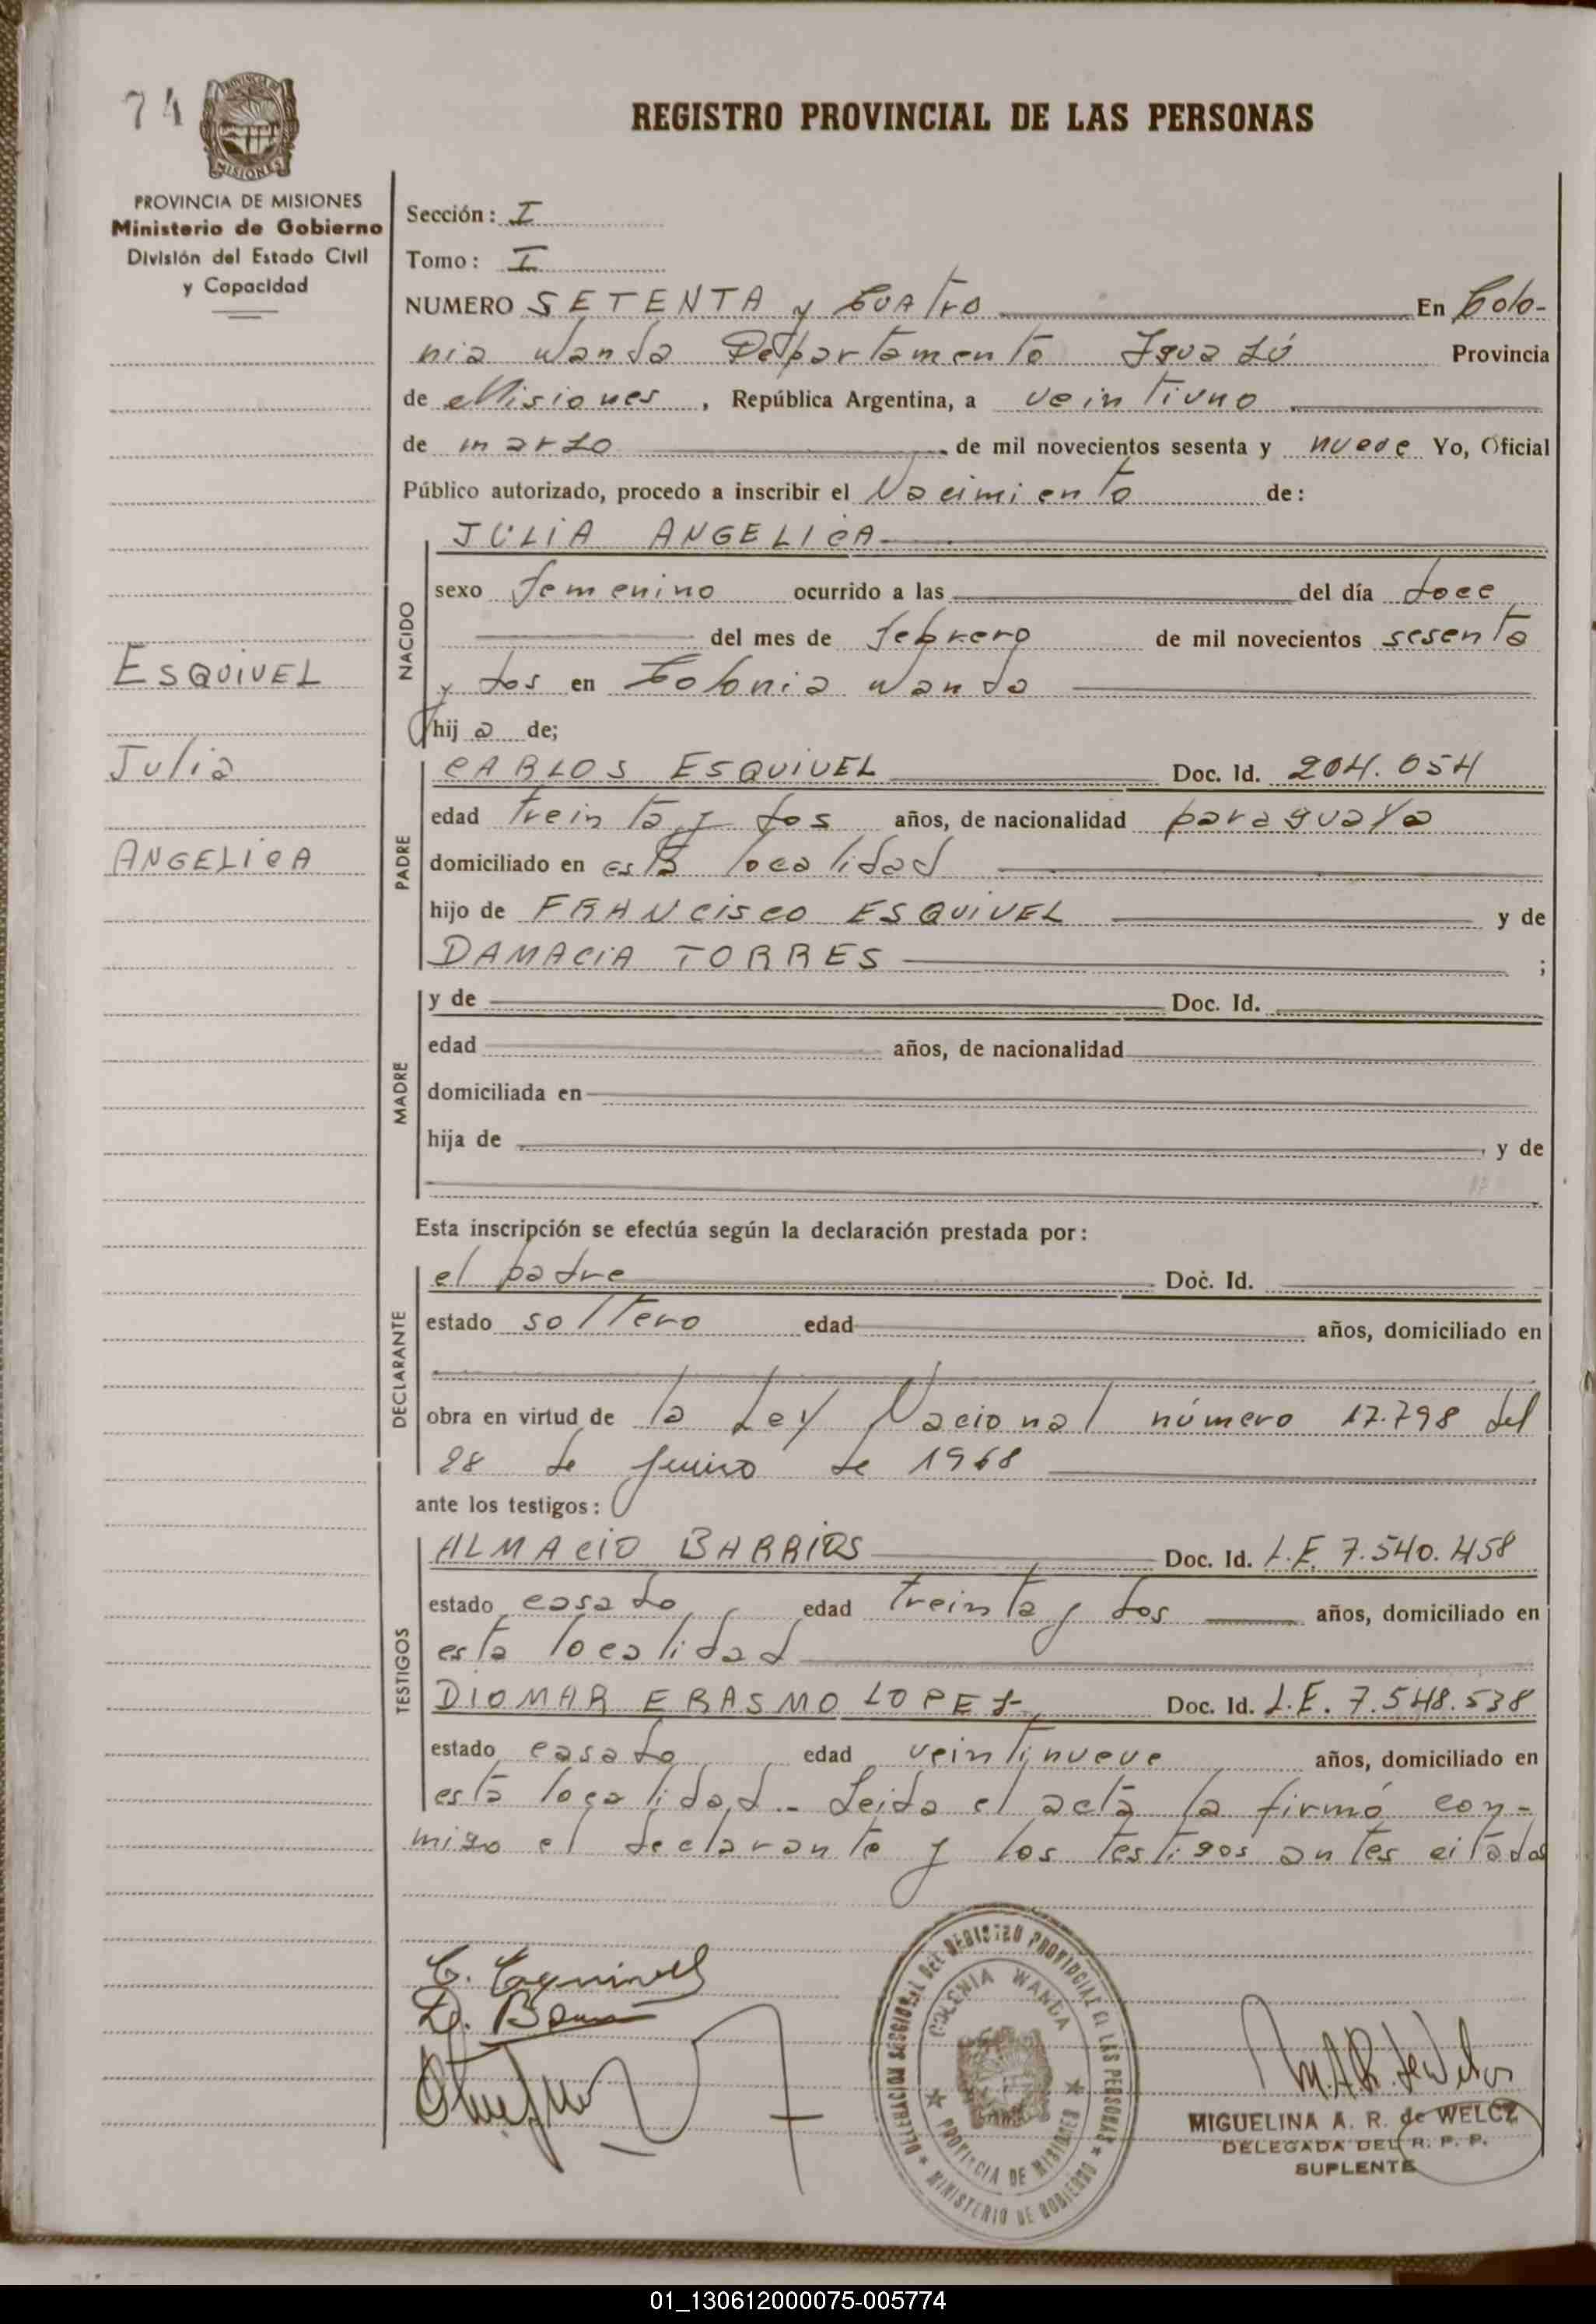 74
PROVINCIA DE MISIONES
Ministerio de Gobierno
División del Estado Civil
y Capacidad
REGISTRO PROVINCIAL DE LAS PERSONAS
Sección: I
Tomo: I
NUMERO SETENTA y CUAtro En Colo-
nia Wanda Departamento Iguazú Provincia
de Misiones, República Argentina, a veintiuno
de marzo de mil novecientos sesenta y nueve Yo, Oficial
Público autorizado, procedo a inscribir el Nacimiento de:
JULIA ANGELICA
NACIDO
sexo femenino ocurrido a las del día doce
del mes de febrero de mil novecientos sesenta
y dos en Colonia Wanda
hija de;
ESQUIVEL
Julia
ANGELICA
PADRE
CARLOS ESQUIVEL Doc. Id. 204.054
edad treinta y dos años, de nacionalidad paraguaya
domiciliado en esta localidad
hijo de FRANCISCO ESQUIVEL y de
DAMACIA TORRES ;
MADRE
y de Doc. Id.
edad años, de nacionalidad
domiciliada en
hija de , y de
Esta inscripción se efectúa según la declaración prestada por:
DECLARANTE
el padre Doc. Id.
estado soltero edad años, domiciliado en
obra en virtud de la Ley Nacional número 17.798 del
28 de junio de 1968
ante los testigos:
TESTIGOS
ALMACIO BARRIOS Doc. Id. L.E. 7.540.458
estado casado edad treinta y dos años, domiciliado en
esta localidad
DIOMAR ERASMO LOPEZ Doc. Id. L.E. 7.548.538
estado casado edad veintinueve años, domiciliado en
esta localidad.- Leida el acta la firmó con-
migo el declarante y los testigos antes citados
C. Esquivel
DELEGACION SECCIONAL DEL REGISTRO PROVINCIAL DE LAS PERSONAS
COLONIA WANDA
PROVINCIA DE MISIONES
MINISTERIO DE GOBIERNO
M.A.R. de Welcz
MIGUELINA A. R. de WELCZ
DELEGADA DEL R. P. P.
SUPLENTE
01_130612000075-005774